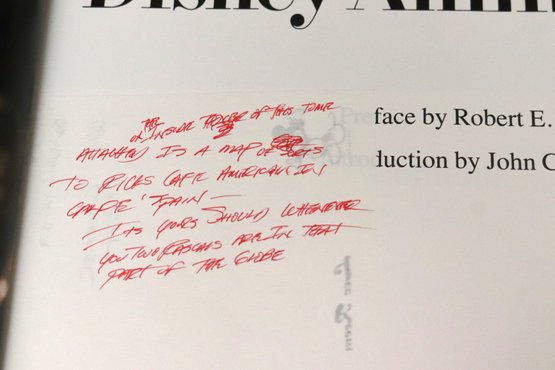 Disney Anim
face by Robert E.
luction by John C
THE
ON INSIDE OF THIS TOME
ATTACHED IS A MAP OF SORTS
TO RICKS CAFE AMERICAN IN
SPAIN —
ITS YOURS SHOULD WHENEVER
YOU TWO RASCALS ARE IN THAT
PART OF THE GLOBE